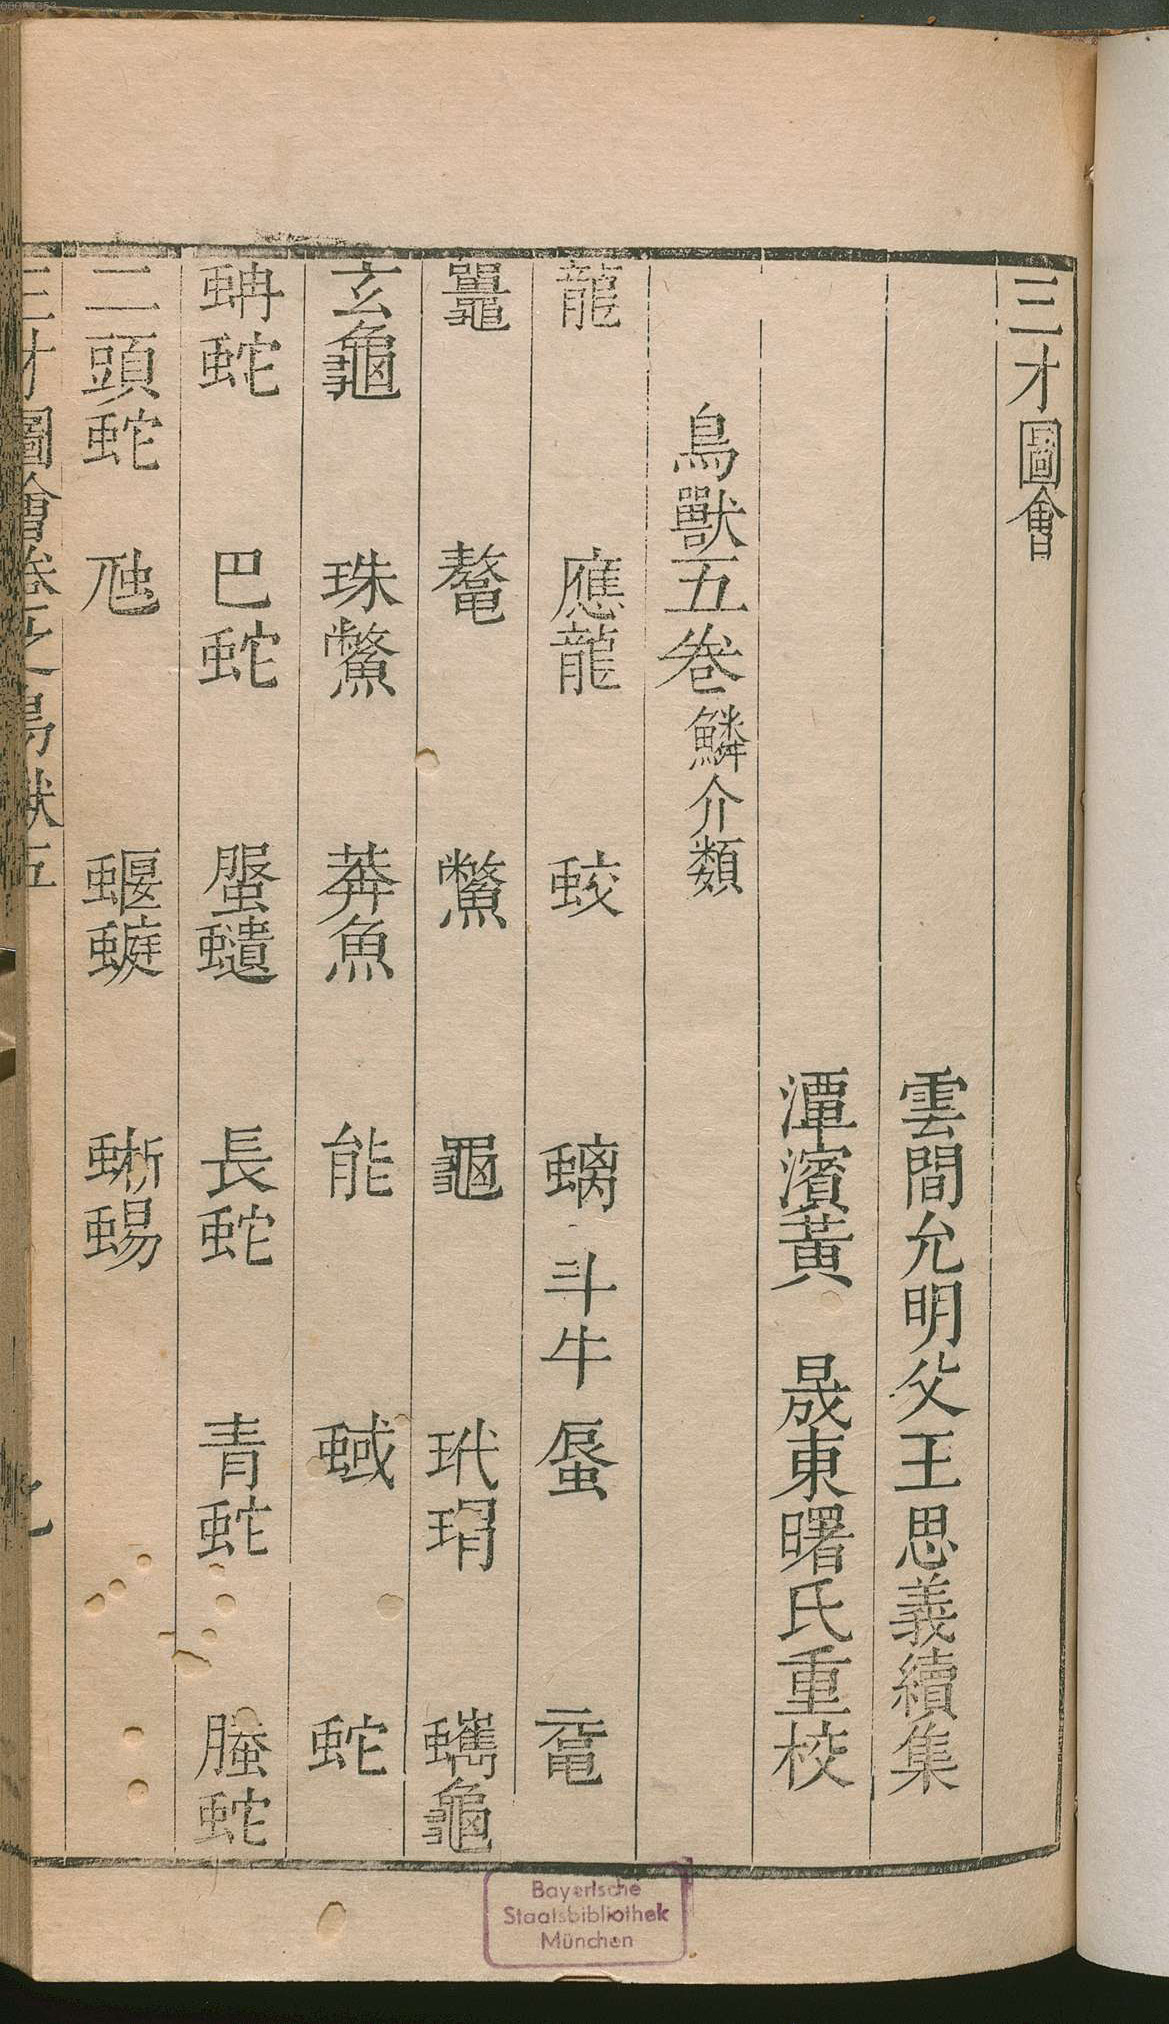 三才圖會
雲間允明父王思義續集
潭濱黃 晟東曙氏重校
鳥獸五卷鱗介類
龍 應龍 蛟 螭 斗牛 蜃 黿
鼉 鼇 鱉 龜 玳瑁 蠵龜
玄龜 珠鱉 莾魚 能 蜮 蛇
蚺蛇 巴蛇 長蛇 青蛇 螣蛇
二頭蛇 虺 蝘蜓 蜥蜴
三才圖會卷之鳥獸五
Bayerische
Staatsbibliothek
München